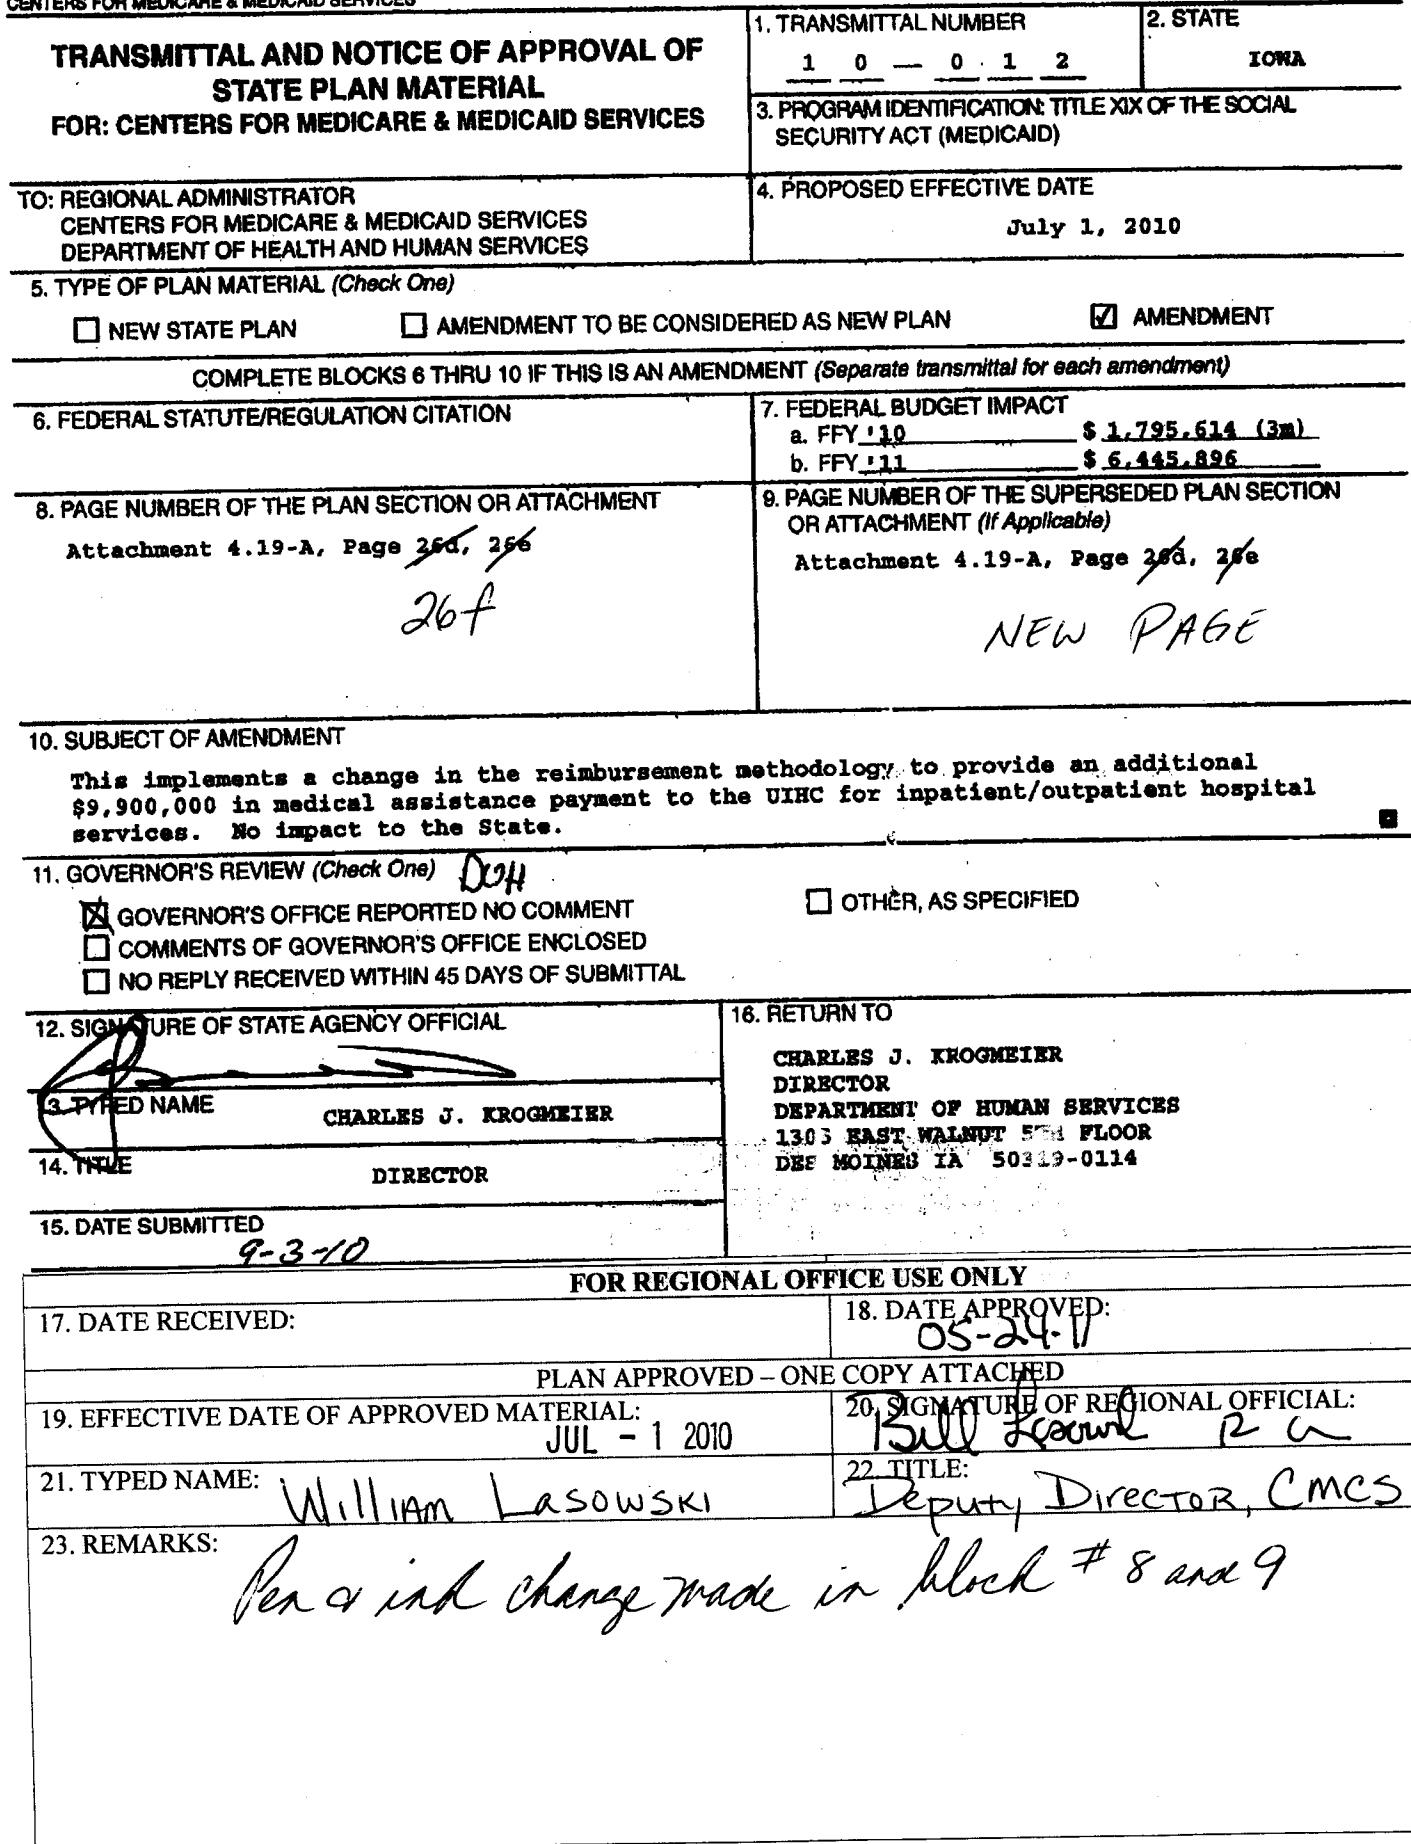 CENTERS FOR MEDICARE & MEDICAID SERVICES
TRANSMITTAL AND NOTICE OF APPROVAL OF
STATE PLAN MATERIAL
FOR: CENTERS FOR MEDICARE & MEDICAID SERVICES
1. TRANSMITTAL NUMBER
1 0 — 0 1 2
2. STATE
IOWA
3. PROGRAM IDENTIFICATION: TITLE XIX OF THE SOCIAL
SECURITY ACT (MEDICAID)
TO: REGIONAL ADMINISTRATOR
CENTERS FOR MEDICARE & MEDICAID SERVICES
DEPARTMENT OF HEALTH AND HUMAN SERVICES
4. PROPOSED EFFECTIVE DATE
July 1, 2010
5. TYPE OF PLAN MATERIAL (Check One)
NEW STATE PLAN AMENDMENT TO BE CONSIDERED AS NEW PLAN AMENDMENT
COMPLETE BLOCKS 6 THRU 10 IF THIS IS AN AMENDMENT (Separate transmittal for each amendment)
6. FEDERAL STATUTE/REGULATION CITATION
7. FEDERAL BUDGET IMPACT
a. FFY '10 $ 1,795,614 (3m)
b. FFY '11 $ 6,445,896
8. PAGE NUMBER OF THE PLAN SECTION OR ATTACHMENT
Attachment 4.19-A, Page 26d, 26e
26f
9. PAGE NUMBER OF THE SUPERSEDED PLAN SECTION
OR ATTACHMENT (If Applicable)
Attachment 4.19-A, Page 26d, 26e
NEW PAGE
10. SUBJECT OF AMENDMENT
This implements a change in the reimbursement methodology to provide an additional
$9,900,000 in medical assistance payment to the UIHC for inpatient/outpatient hospital
services. No impact to the State.
11. GOVERNOR'S REVIEW (Check One)
GOVERNOR'S OFFICE REPORTED NO COMMENT
COMMENTS OF GOVERNOR'S OFFICE ENCLOSED
NO REPLY RECEIVED WITHIN 45 DAYS OF SUBMITTAL
OTHER, AS SPECIFIED
12. SIGNATURE OF STATE AGENCY OFFICIAL
13. TYPED NAME
CHARLES J. KROGMEIER
14. TITLE
DIRECTOR
15. DATE SUBMITTED
9-3-10
16. RETURN TO
CHARLES J. KROGMEIER
DIRECTOR
DEPARTMENT OF HUMAN SERVICES
1305 EAST WALNUT 5TH FLOOR
DES MOINES IA 50319-0114
FOR REGIONAL OFFICE USE ONLY
17. DATE RECEIVED:
18. DATE APPROVED:
05-24-11
PLAN APPROVED – ONE COPY ATTACHED
19. EFFECTIVE DATE OF APPROVED MATERIAL:
JUL - 1 2010
20. SIGNATURE OF REGIONAL OFFICIAL:
Bill Lasowski
21. TYPED NAME: WILLIAM LASOWSKI
22. TITLE:
Deputy Director, CMCS
23. REMARKS:
Pen & ink change made in block # 8 and 9